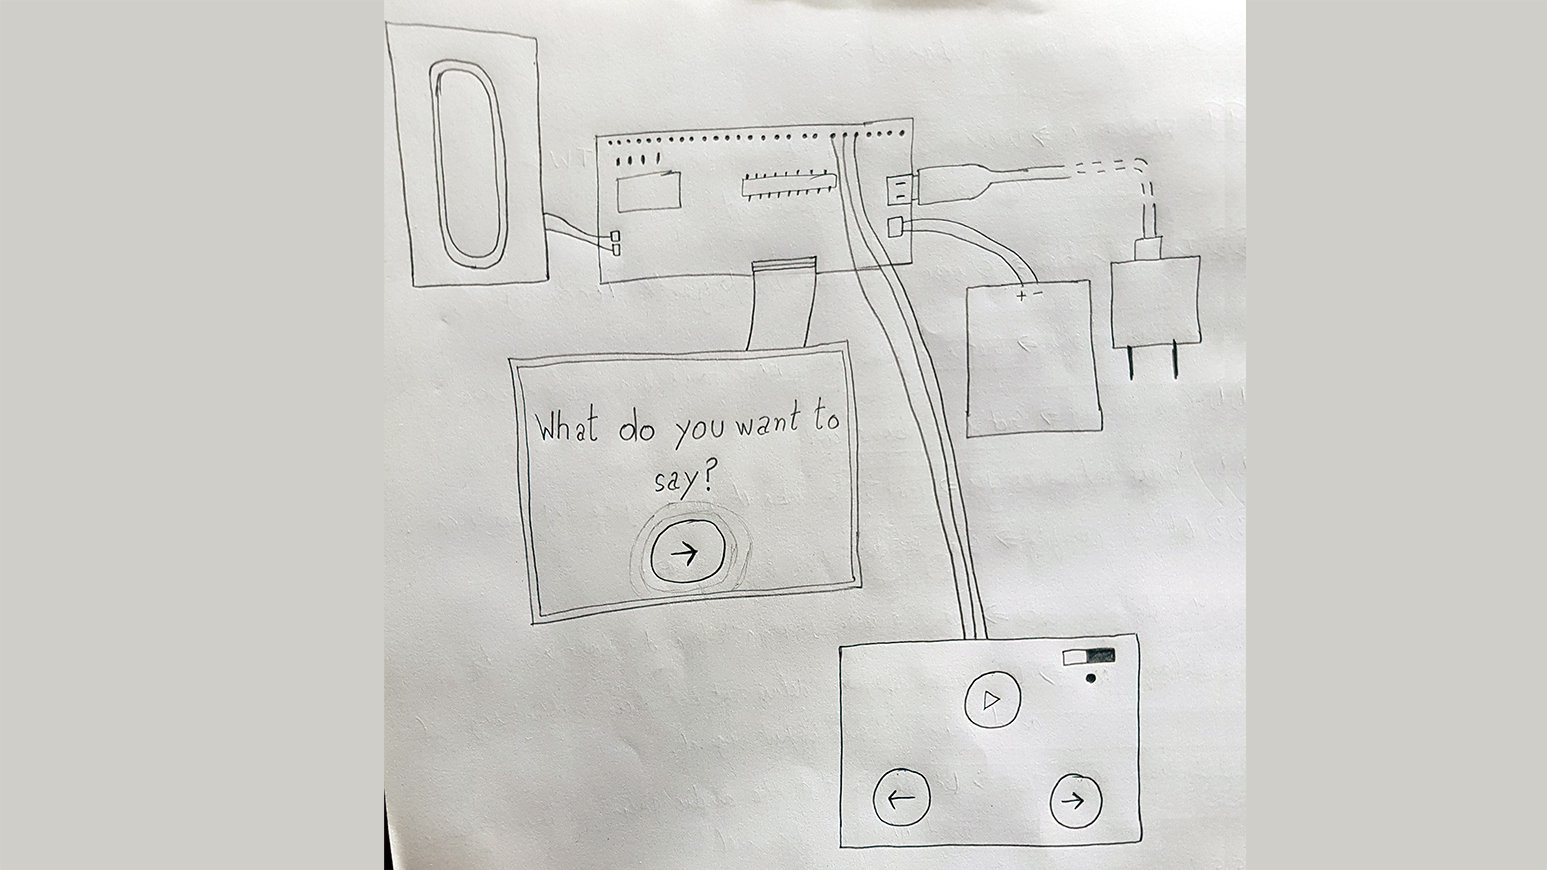 What do you want to
say?
+ -